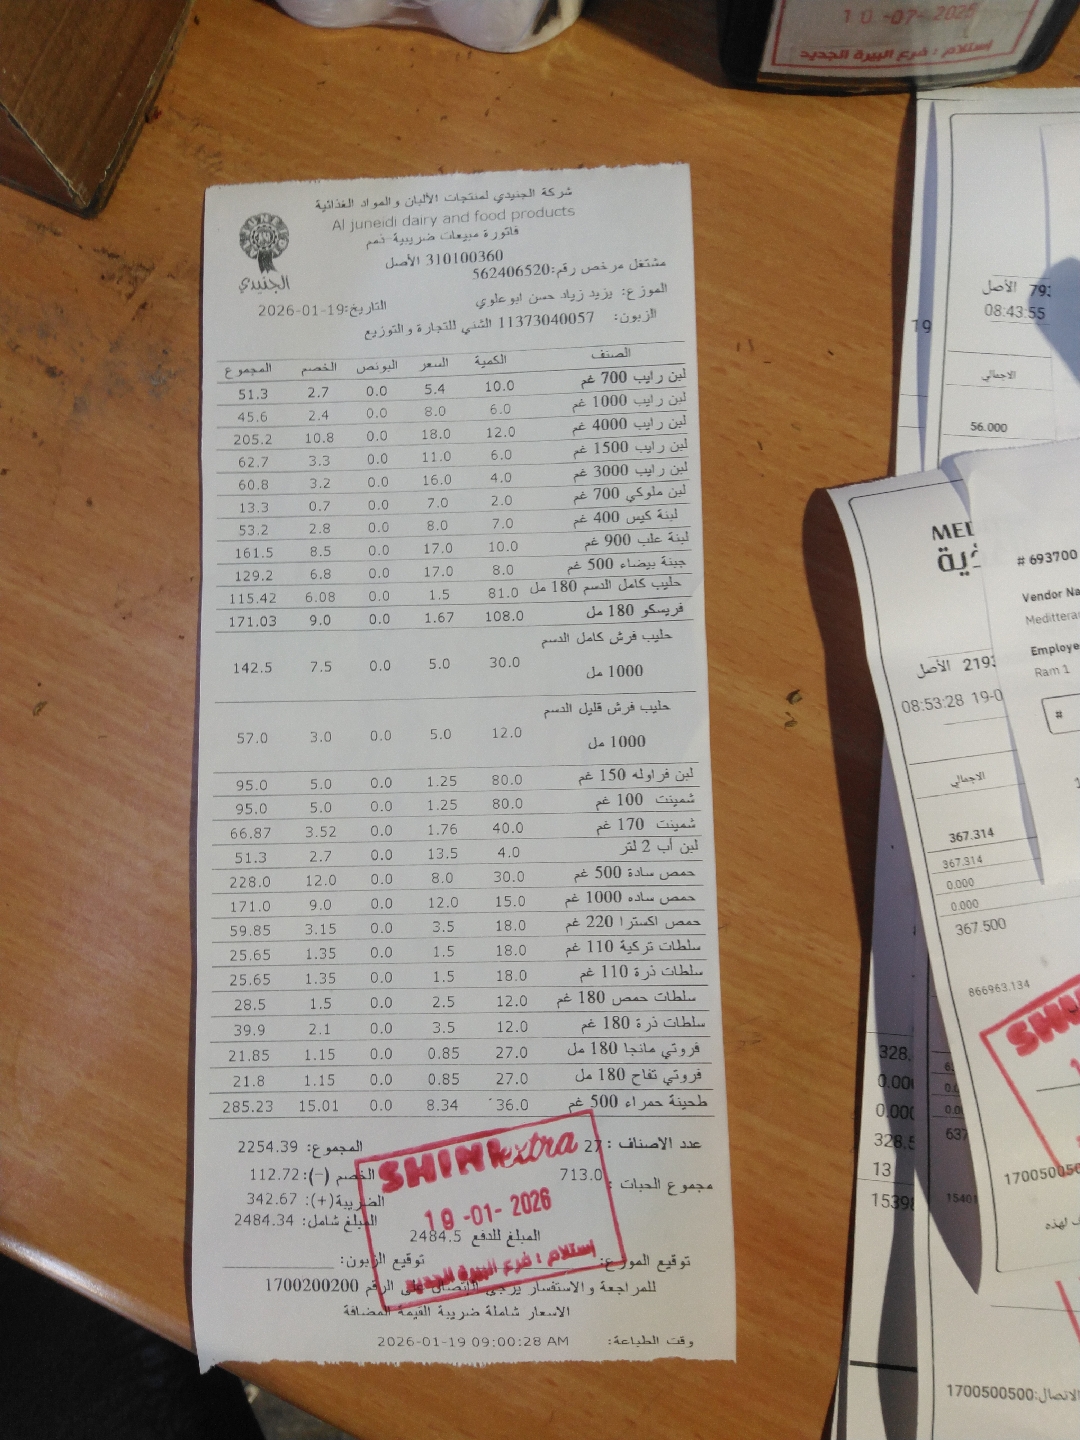 شركة الجنيدي لمنتجات الألبان والمواد الغذائية
Al juneidi dairy and food products
فاتورة مبيعات ضريبية-ذمم
الجنيدي
310100360 الأصل
مشتغل مرخص رقم:562406520
الموزع: يزيد زياد حسن ابوعلوي
التاريخ:19-01-2026
الزبون: 11373040057 الشني للتجارة والتوزيع
الصنف الكمية السعر البونص الخصم المجموع
لبن رايب 700 غم 10.0 5.4 0.0 2.7 51.3
لبن رايب 1000 غم 6.0 8.0 0.0 2.4 45.6
لبن رايب 4000 غم 12.0 18.0 0.0 10.8 205.2
لبن رايب 1500 غم 6.0 11.0 0.0 3.3 62.7
لبن رايب 3000 غم 4.0 16.0 0.0 3.2 60.8
لبن ملوكي 700 غم 2.0 7.0 0.0 0.7 13.3
لبنة كيس 400 غم 7.0 8.0 0.0 2.8 53.2
لبنة علب 900 غم 10.0 17.0 0.0 8.5 161.5
جبنة بيضاء 500 غم 8.0 17.0 0.0 6.8 129.2
حليب كامل الدسم 180 مل 81.0 1.5 0.0 6.08 115.42
فريسكو 180 مل 108.0 1.67 0.0 9.0 171.03
حليب فرش كامل الدسم
1000 مل 30.0 5.0 0.0 7.5 142.5
حليب فرش قليل الدسم
1000 مل 12.0 5.0 0.0 3.0 57.0
لبن فراوله 150 غم 80.0 1.25 0.0 5.0 95.0
شمينت 100 غم 80.0 1.25 0.0 5.0 95.0
شمينت 170 غم 40.0 1.76 0.0 3.52 66.87
لبن أب 2 لتر 4.0 13.5 0.0 2.7 51.3
حمص سادة 500 غم 30.0 8.0 0.0 12.0 228.0
حمص ساده 1000 غم 15.0 12.0 0.0 9.0 171.0
حمص اكسترا 220 غم 18.0 3.5 0.0 3.15 59.85
سلطات تركية 110 غم 18.0 1.5 0.0 1.35 25.65
سلطات ذرة 110 غم 18.0 1.5 0.0 1.35 25.65
سلطات حمص 180 غم 12.0 2.5 0.0 1.5 28.5
سلطات ذرة 180 غم 12.0 3.5 0.0 2.1 39.9
فروتي مانجا 180 مل 27.0 0.85 0.0 1.15 21.85
فروتي تفاح 180 مل 27.0 0.85 0.0 1.15 21.8
طحينة حمراء 500 غم 36.0 8.34 0.0 15.01 285.23
عدد الاصناف : 27 المجموع: 2254.39
مجموع الحبات : 713.0 الخصم (–): 112.72
الضريبة(+): 342.67
المبلغ شامل: 2484.34
المبلغ للدفع 2484.5
توقيع الموزع: توقيع الزبون:
للمراجعة والاستفسار يرجى الاتصال على الرقم 1700200200
الاسعار شاملة ضريبة القيمة المضافة
وقت الطباعة: 2026-01-19 09:00:28 AM
SHINI extra
19 -01- 2026
إستلام : فرع البيرة الجديد
10 -07- 2026
إستلام : فرع البيرة الجديد
الأصل
08:43:55
19
الاجمالي
56.000
# 693700
Vendor Na
Employe
Ram 1
#
الأصل
08:53:28 19-0
الاجمالي
367.314
367.314
0.000
0.000
367.500
866963.134
328.
0.00
0.00
328.5
637
13
15398
1540
17005005
ف لهذه
الاتصال:1700500500